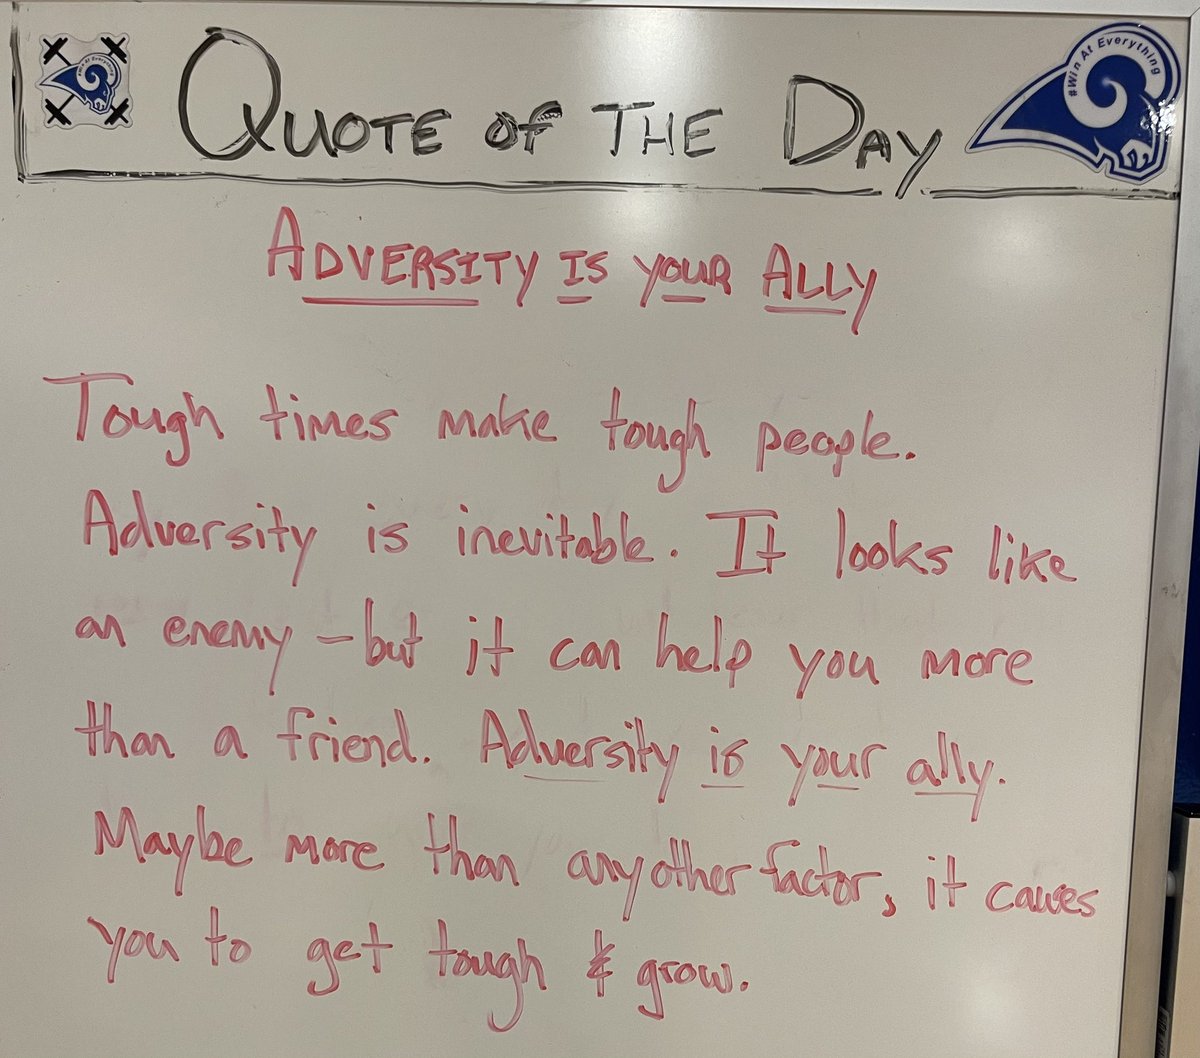 #Win At Everything
QUOTE OF THE DAY
#Win At Everything
ADVERSITY IS YOUR ALLY
Tough times make tough people.
Adversity is inevitable. It looks like
an enemy - but it can help you more
than a friend. Adversity is your ally.
Maybe more than any other factor, it causes
you to get tough & grow.